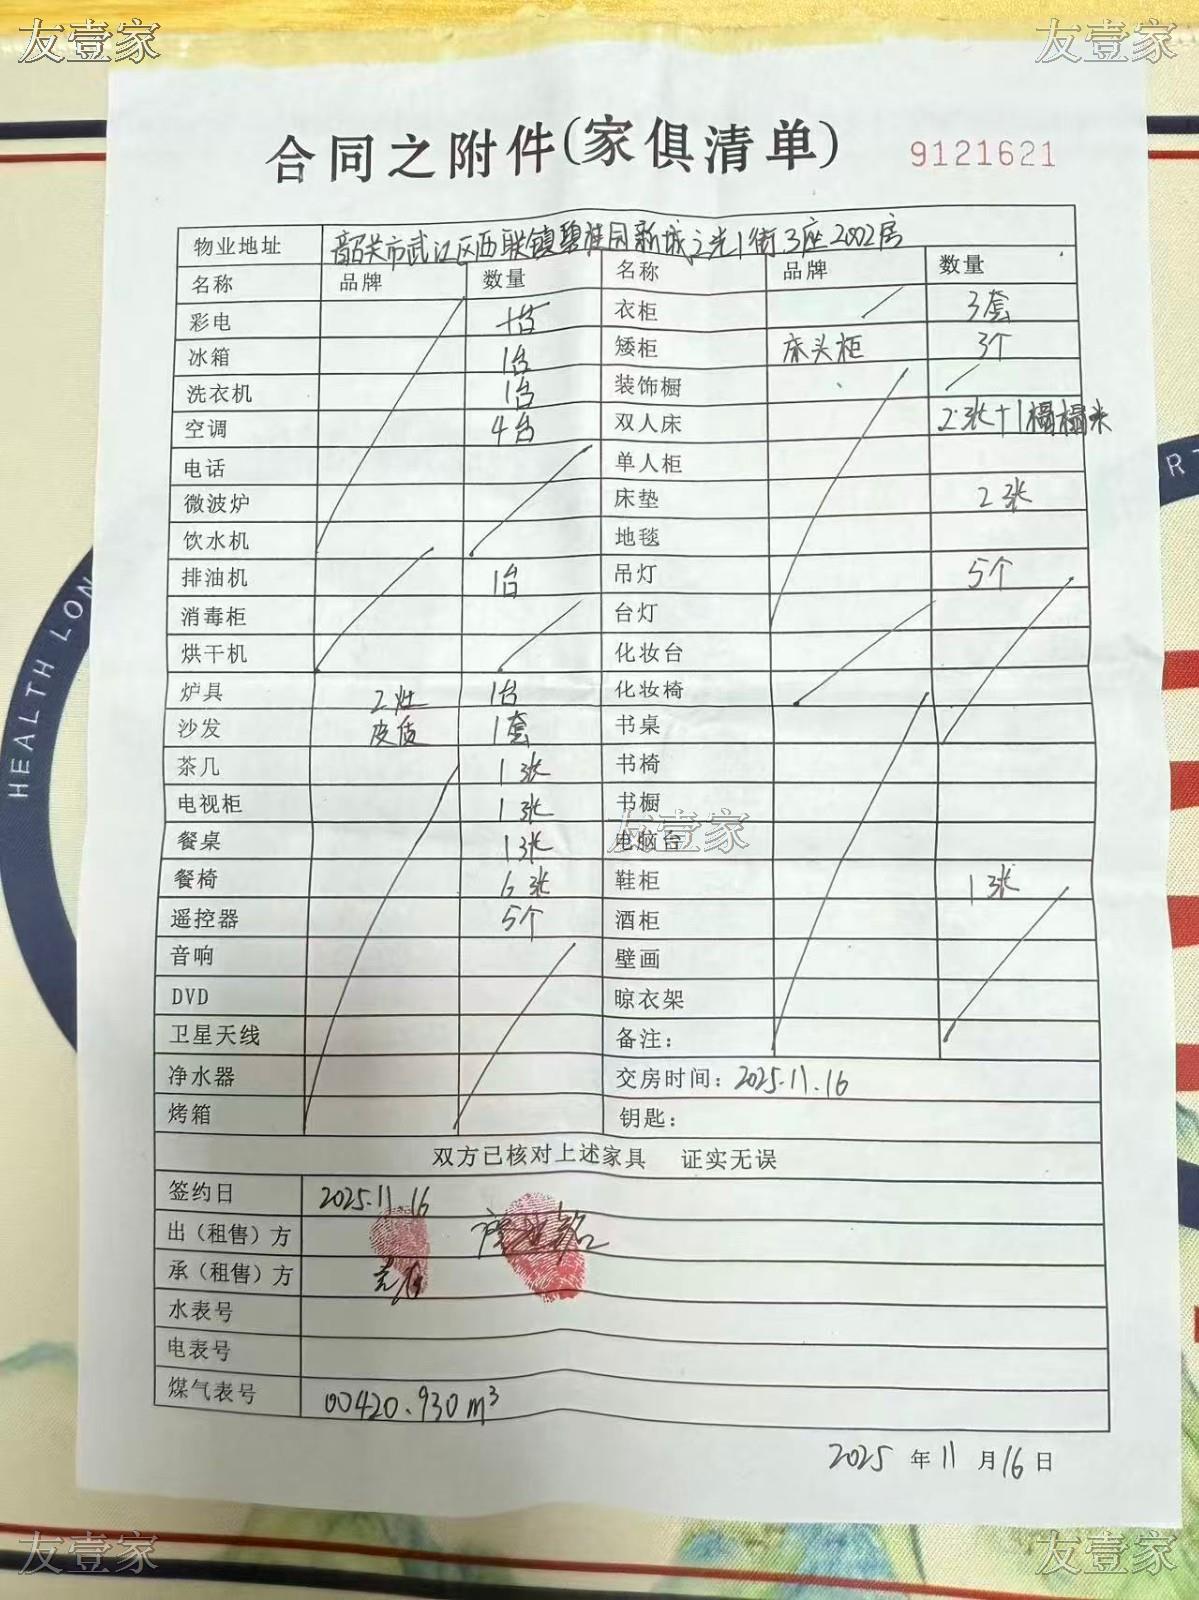 友壹家 友壹家
合同之附件(家俱清单) 9121621
物业地址 韶关市武江区西联镇碧桂园新城之光1街3座2002房
名称 品牌 数量 名称 品牌 数量
彩电 1台 衣柜 3套
冰箱 1台 矮柜 床头柜 3个
洗衣机 1台 装饰橱
空调 4台 双人床 2张+1榻榻米
电话 单人柜
微波炉 床垫 2张
饮水机 地毯
排油机 1台 吊灯 5个
消毒柜 台灯
烘干机 化妆台
炉具 2灶 1台 化妆椅
沙发 皮质 1套 书桌
茶几 1张 书椅
电视柜 1张 书橱
友壹家
餐桌 1张 电脑台
餐椅 6张 鞋柜 1张
遥控器 5个 酒柜
音响 壁画
DVD 晾衣架
卫星天线 备注:
净水器 交房时间: 2025.11.16
烤箱 钥匙:
双方已核对上述家具 证实无误
签约日 2025.11.16
出(租售)方
承(租售)方
水表号
电表号
煤气表号 00420.930 m³
2025 年 11 月 16 日
友壹家 友壹家
HEALTH LON
RT